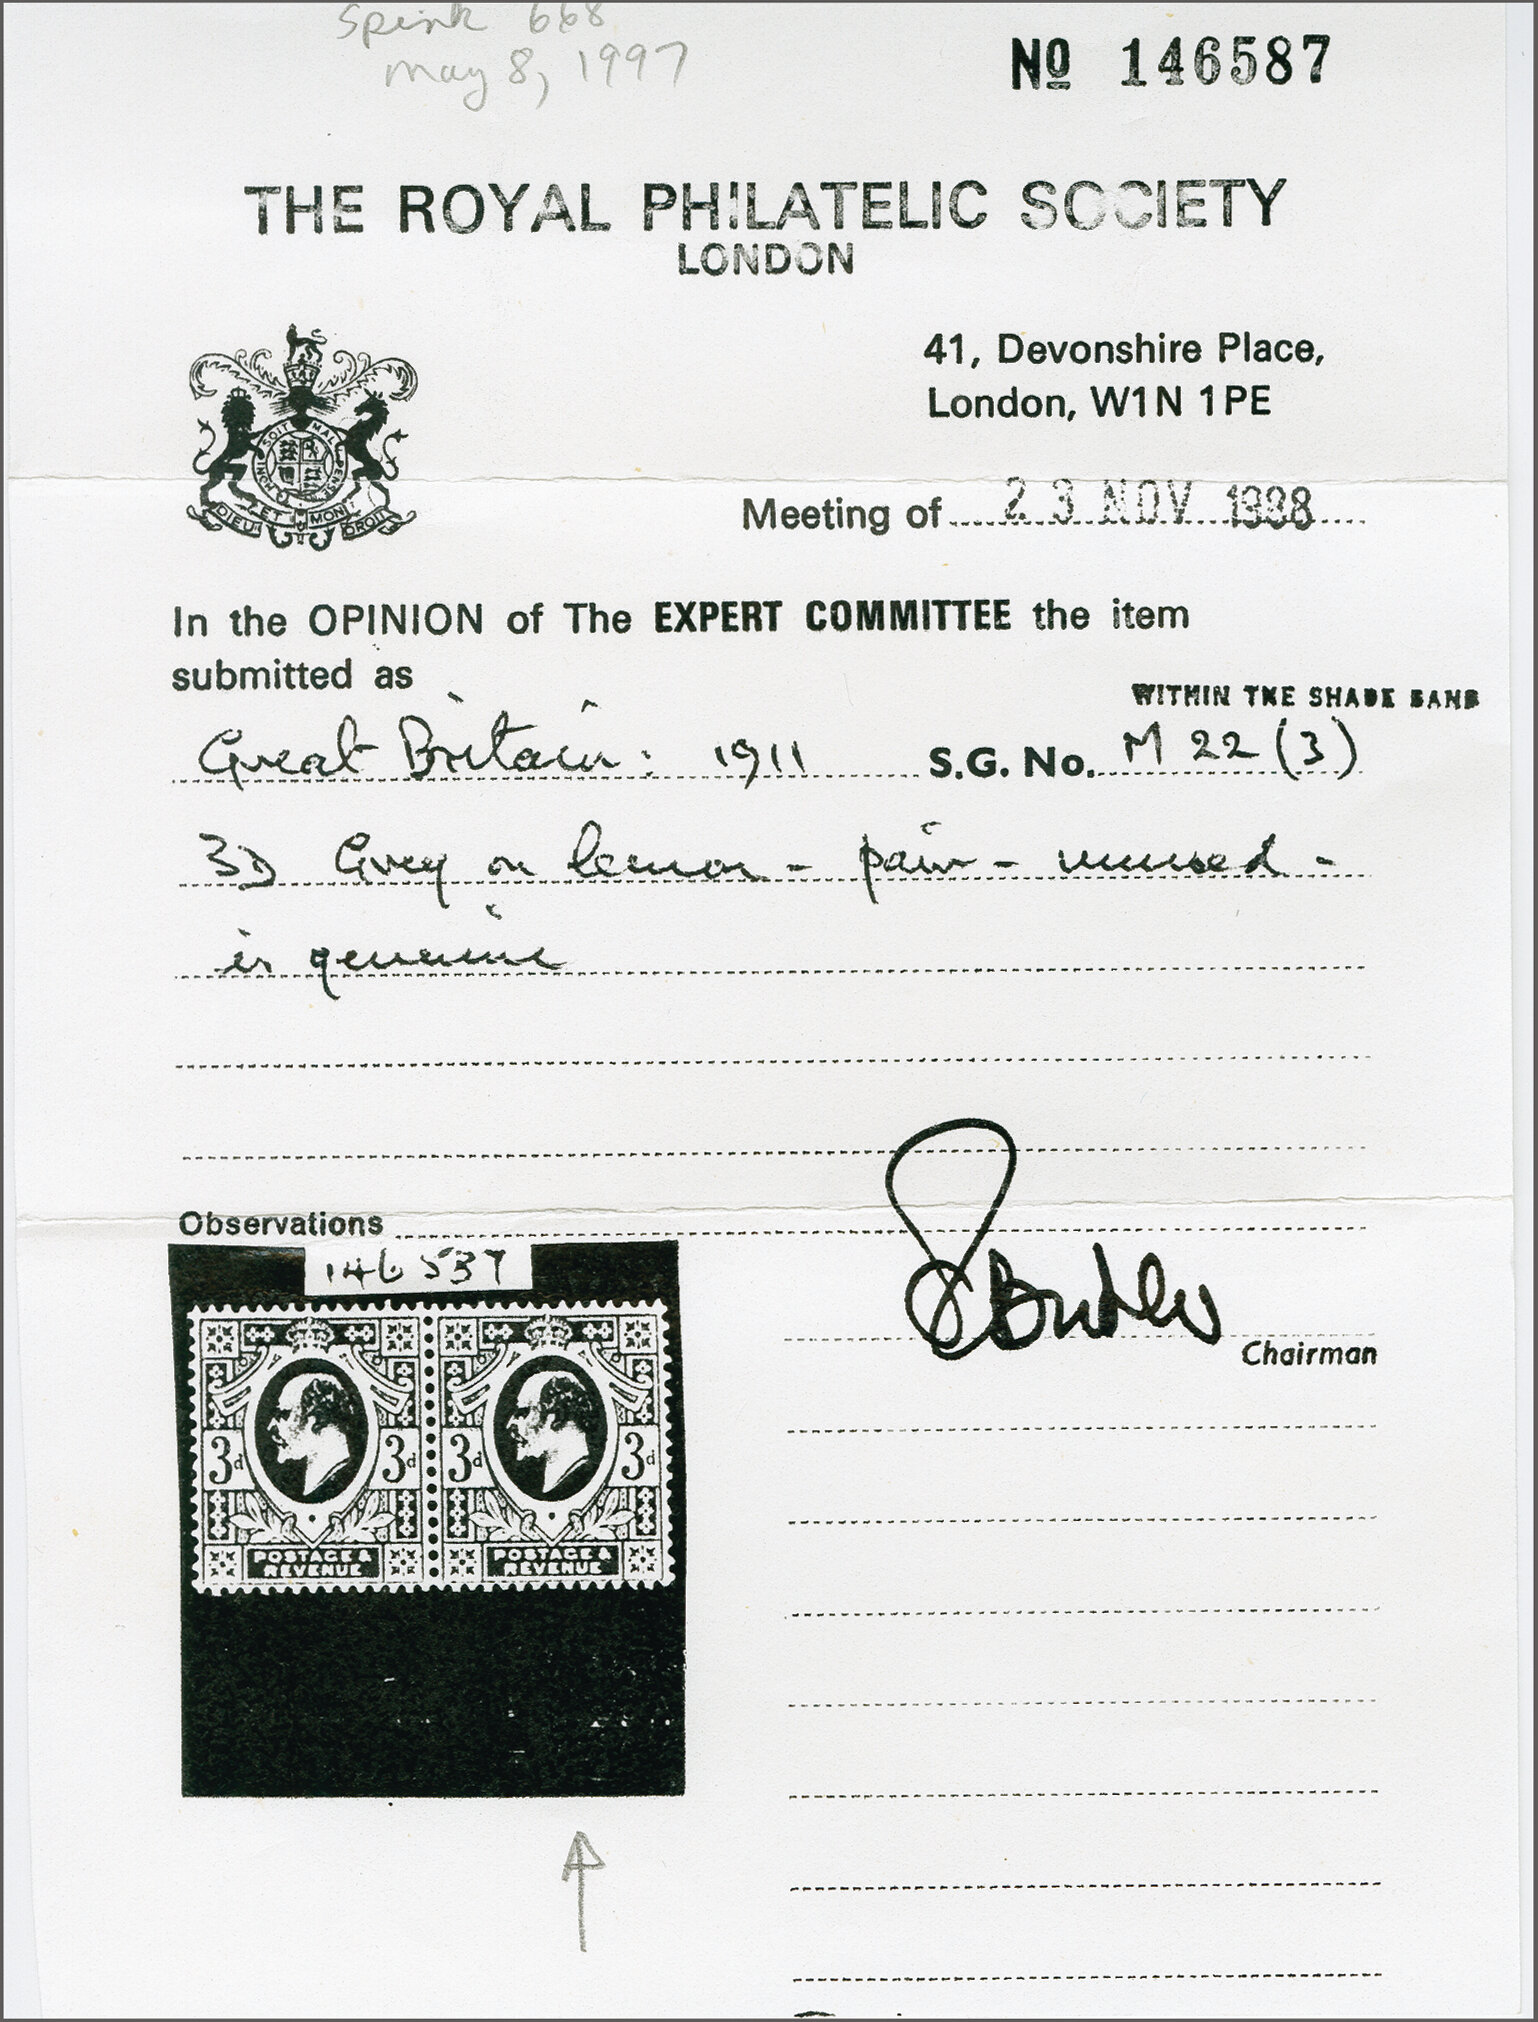 Spink 668
May 8, 1997
No 146587
THE ROYAL PHILATELIC SOCIETY
LONDON
41, Devonshire Place,
London, W1N 1PE
SOIT MAL
HONI
DIEU ET MON DROIT
Meeting of 23 NOV 1988
In the OPINION of The EXPERT COMMITTEE the item
submitted as
WITHIN THE SHADE BAND
Great Britain: 1911 S.G. No. M 22 (3)
3D Grey on lemon - pair - unused -
is genuine
Observations
146587
3d 3d 3d 3d
POSTAGE & REVENUE POSTAGE & REVENUE
Butler
Chairman